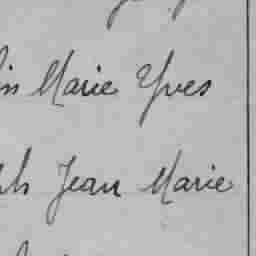 in Marie Yves
ph Jean Marie